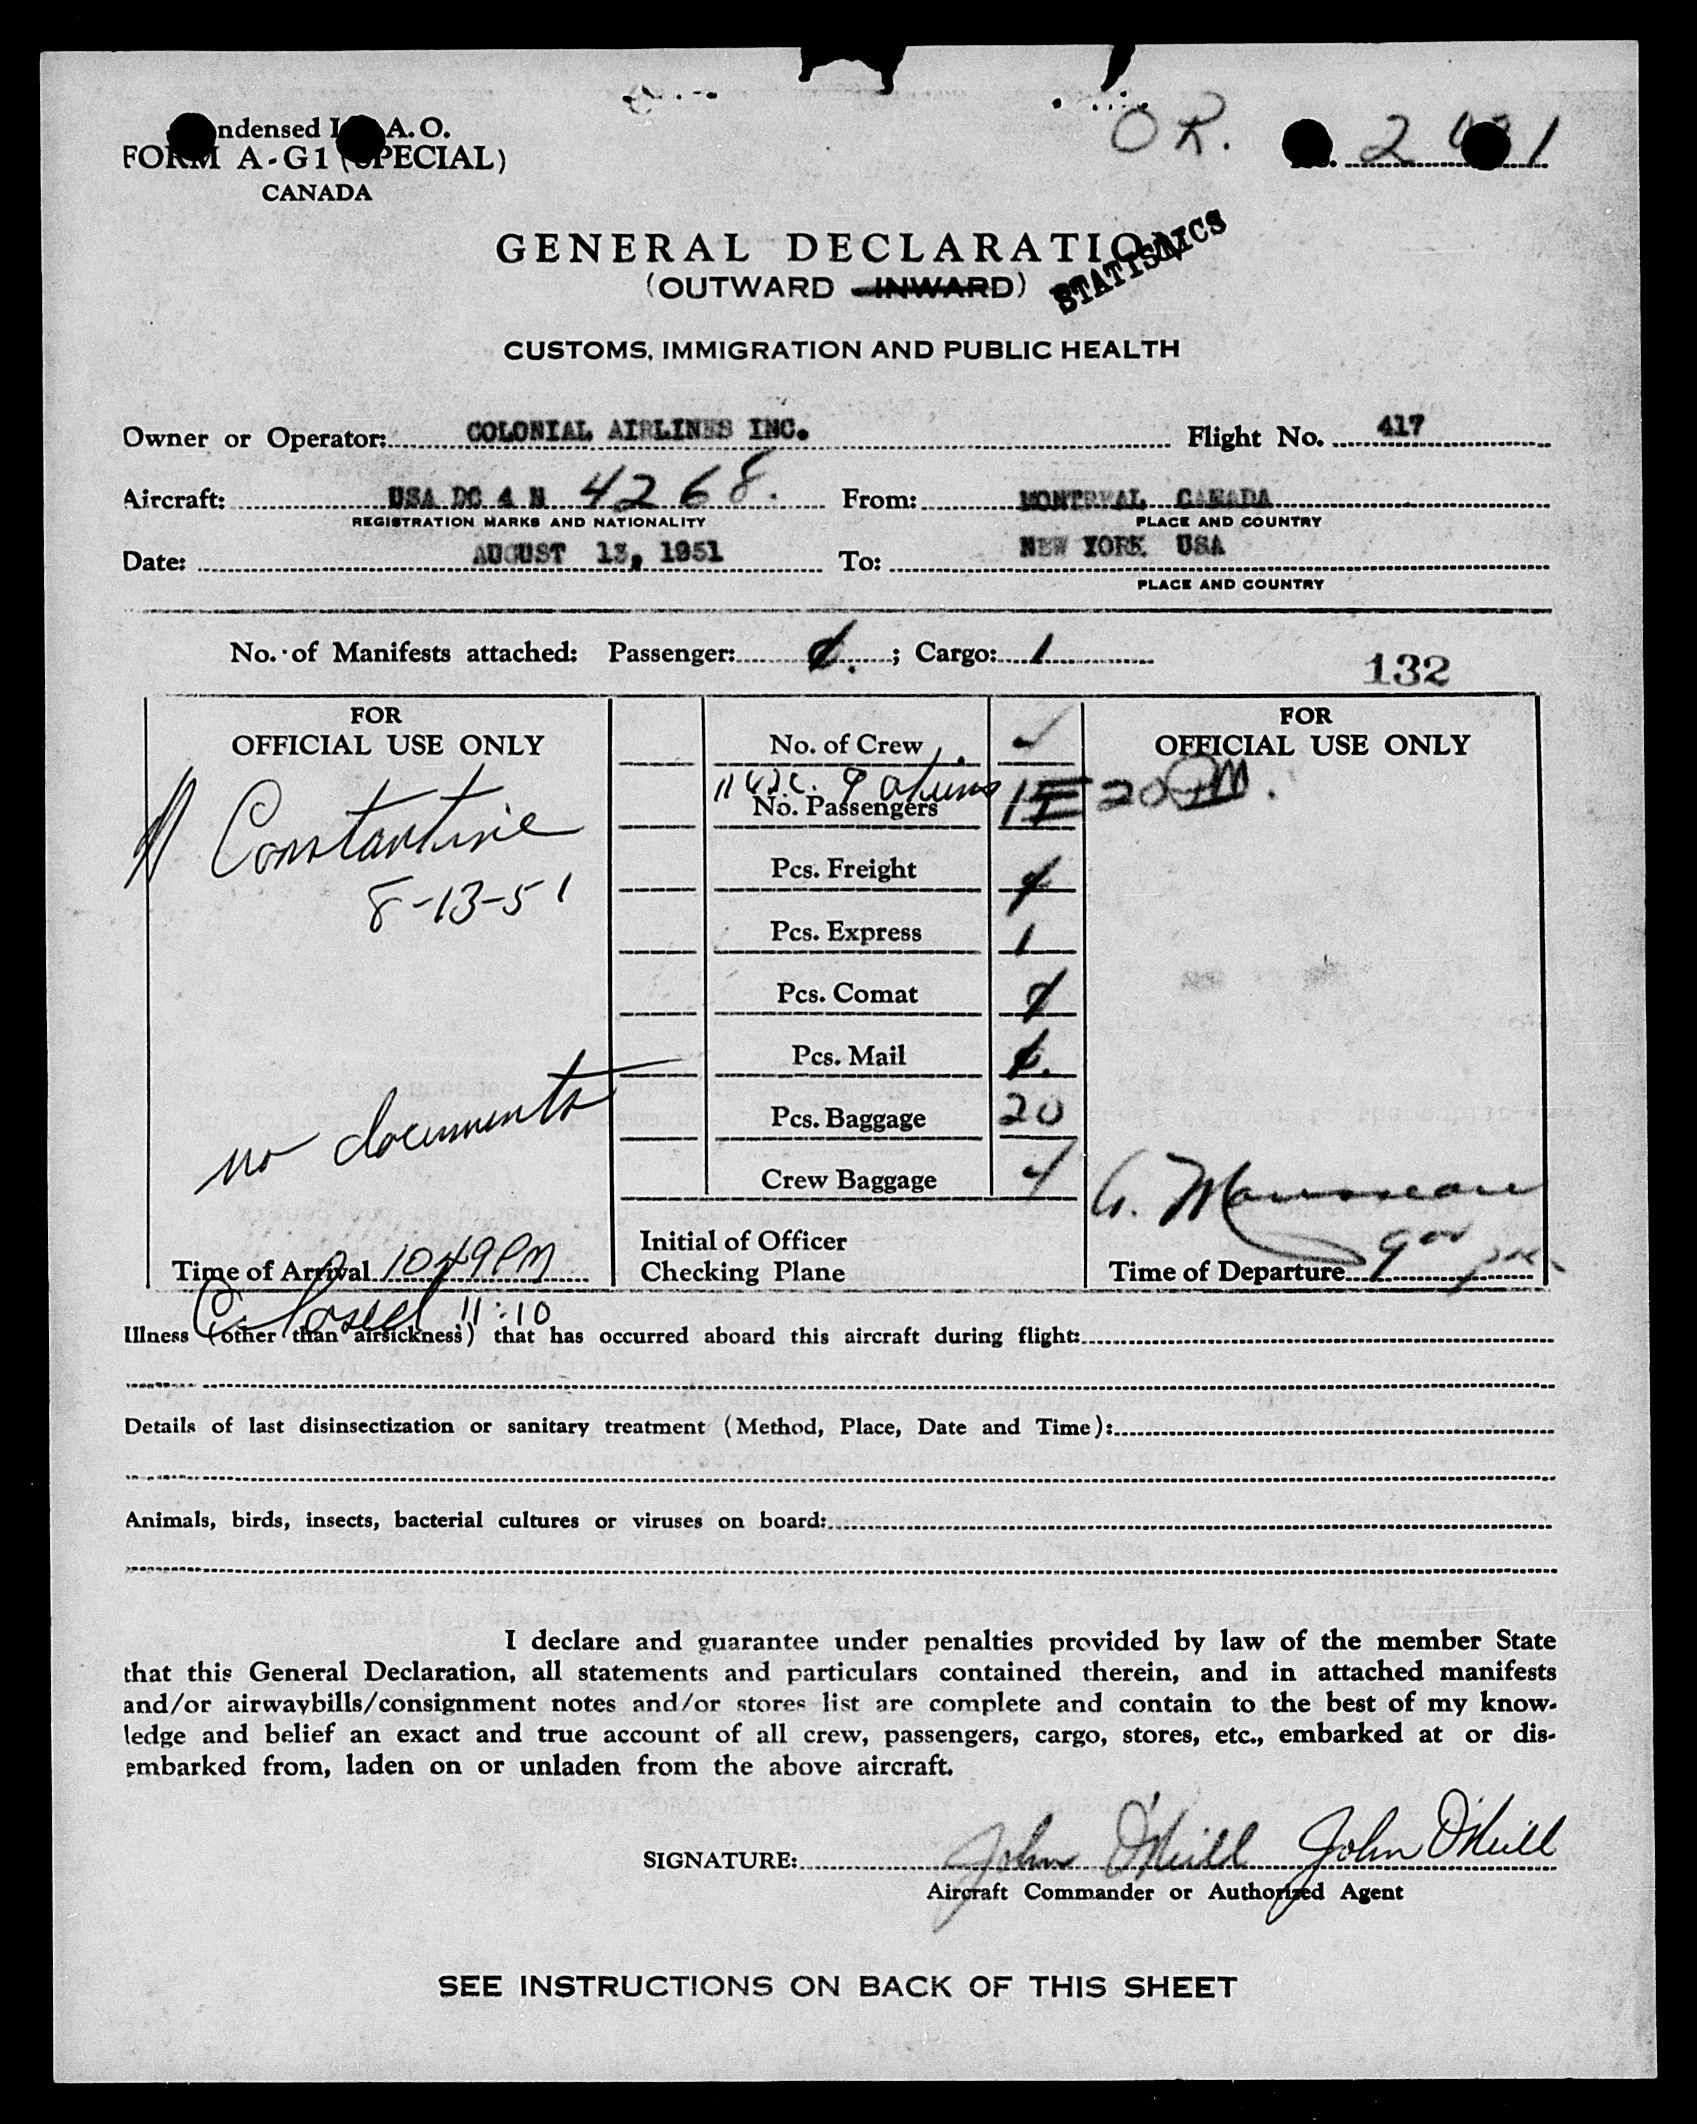 ndensed I A. O.
FORM A-G1 (SPECIAL)
CANADA
OR. 2 1
GENERAL DECLARATION
STATISTICS
(OUTWARD - INWARD)
CUSTOMS, IMMIGRATION AND PUBLIC HEALTH
Owner or Operator: COLONIAL AIRLINES INC. Flight No. 417
Aircraft: USA DC 4 N 4268. From: MONTREAL CANADA
REGISTRATION MARKS AND NATIONALITY PLACE AND COUNTRY
Date: AUGUST 13, 1951 To: NEW YORK USA
PLACE AND COUNTRY
No. of Manifests attached: Passenger: ; Cargo: 1
132
FOR
OFFICIAL USE ONLY
Constantine
8-13-51
no documents
Time of Arrival 1049 PM
Closed 11:10
No. of Crew
No. Passengers
Pcs. Freight
Pcs. Express 1
Pcs. Comat
Pcs. Mail
Pcs. Baggage 20
Crew Baggage
Initial of Officer
Checking Plane
FOR
OFFICIAL USE ONLY
20 PM.
Time of Departure 9
Illness (other than airsickness) that has occurred aboard this aircraft during flight:
Details of last disinsectization or sanitary treatment (Method, Place, Date and Time):
Animals, birds, insects, bacterial cultures or viruses on board:
I declare and guarantee under penalties provided by law of the member State
that this General Declaration, all statements and particulars contained therein, and in attached manifests
and/or airwaybills/consignment notes and/or stores list are complete and contain to the best of my know-
ledge and belief an exact and true account of all crew, passengers, cargo, stores, etc., embarked at or dis-
embarked from, laden on or unladen from the above aircraft.
SIGNATURE: John O'Neill John O'Neill
Aircraft Commander or Authorized Agent
SEE INSTRUCTIONS ON BACK OF THIS SHEET